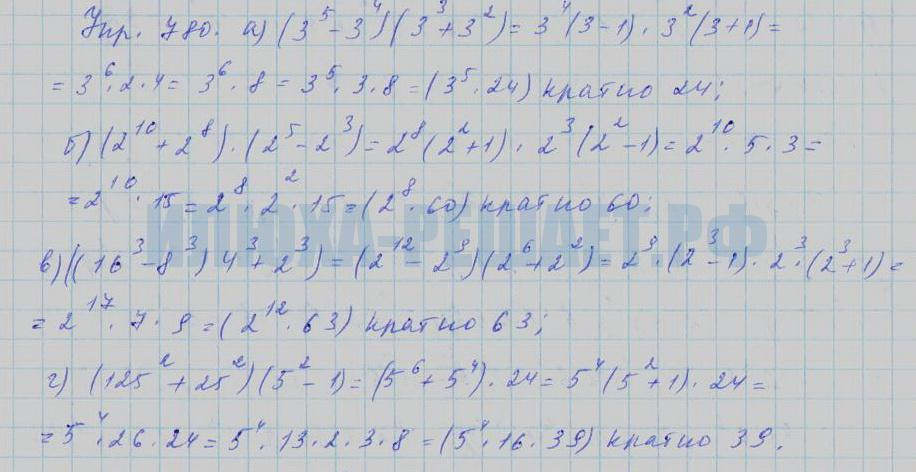 Упр. 780. а) (3⁵ - 3⁴)(3³ + 3²) = 3⁴(3 - 1) · 3²(3 + 1) =
= 3⁶ · 2 · 4 = 3⁶ · 8 = 3⁵ · 3 · 8 = (3⁵ · 24) кратно 24;
б) (2¹⁰ + 2⁸) · (2⁵ - 2³) = 2⁸(2² + 1) · 2³(2² - 1) = 2¹⁰ · 5 · 3 =
= 2¹⁰ · 15 = 2⁸ · 2² · 15 = (2⁸ · 60) кратно 60;
ИЛЮХА-РЕШАЕТ.РФ
в) ((16³ - 8³) 4³ + 2³) = (2¹² - 2⁹)(2⁶ + 2²) = 2⁹ · (2³ - 1) · 2³ · (2³ + 1) =
= 2¹⁷ · 7 · 9 = (2¹² · 63) кратно 63;
г) (125² + 25²)(5² - 1) = (5⁶ + 5⁴) · 24 = 5⁴(5² + 1) · 24 =
= 5⁴ · 26 · 24 = 5⁴ · 13 · 2 · 3 · 8 = (5⁴ · 16 · 39) кратно 39.